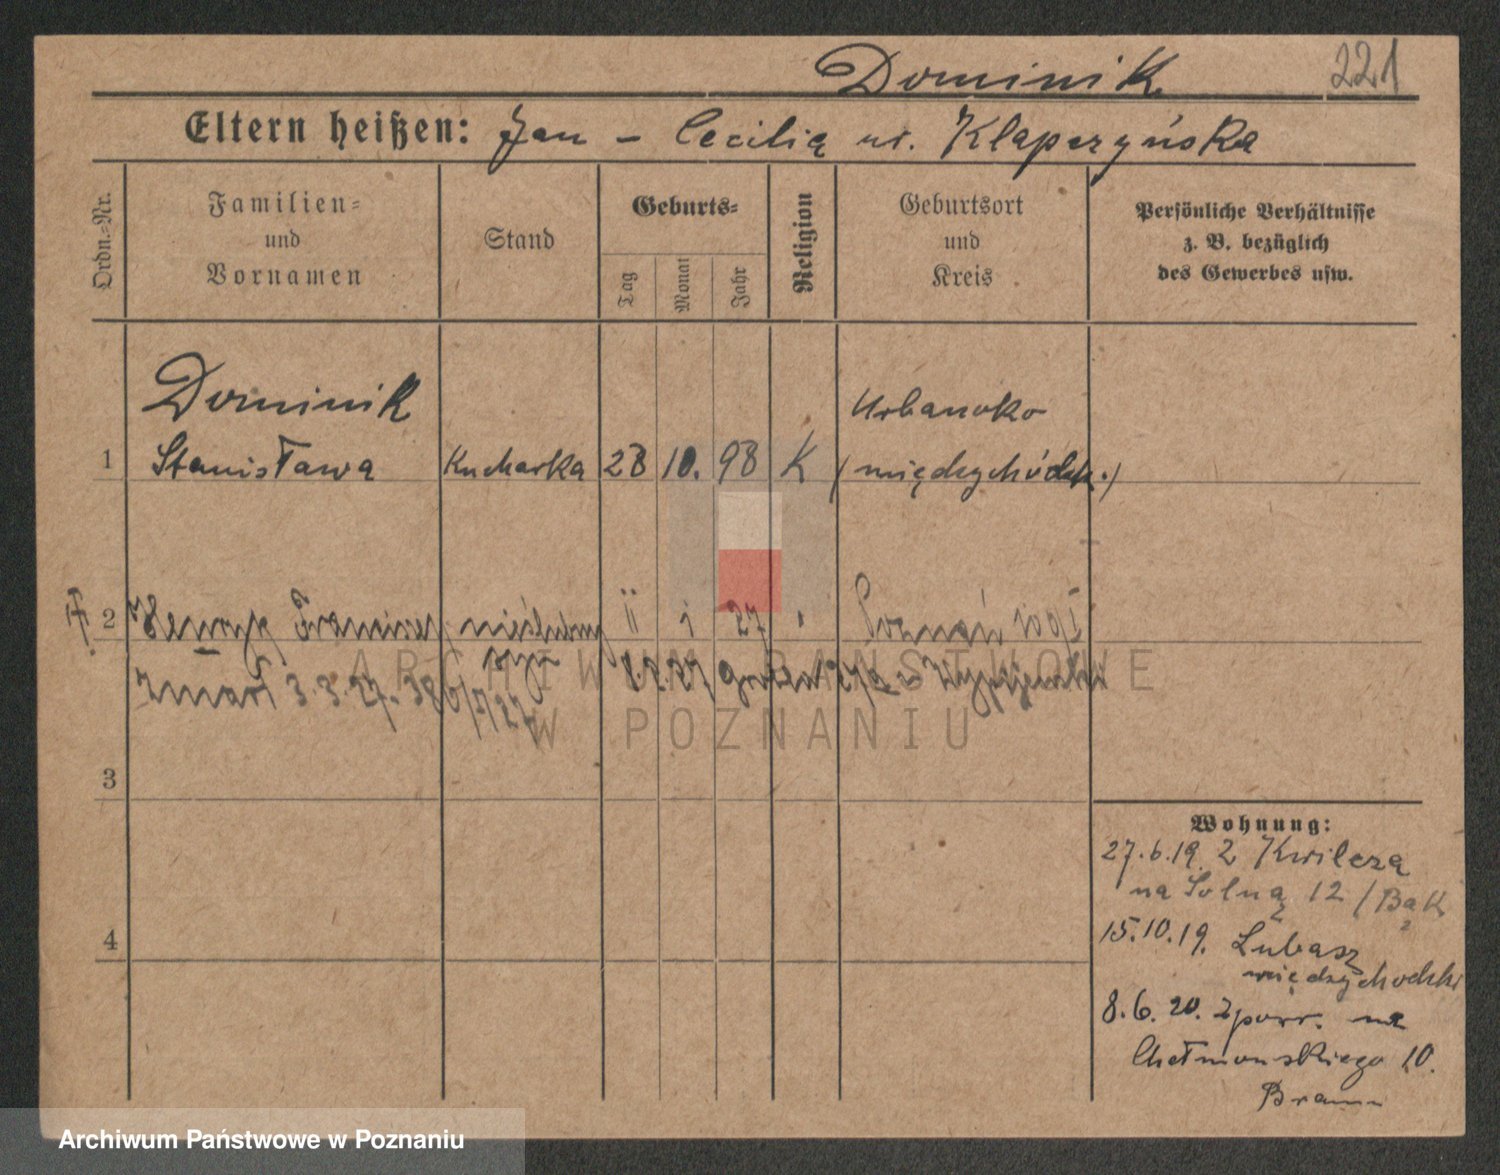 Dominik 221
Eltern heißen: Jan – Cecilią ur. Klapczyńska
Ordn.-Nr.
Familien- und Vornamen
Stand
Geburts-
Tag Monat Jahr
Religion
Geburtsort und Kreis
Persönliche Verhältnisse
z. B. bezüglich
des Gewerbes usw.
Dominik Urbanoko
1 Stanisława Kucharka 28 10. 98 K (międzychódzk.)
2 Henryk nieślubny 11 1 27 Poznań
syn
Zmarł 3.3.27.
3
4
Wohnung:
27.6.19 z Kwilcza
na Solną 12 / Bąk
15.10.19. Lubasz
międzychodzki
8.6.20. zpow. na
Chełmonskiego 10.
Braun
ARCHIWUM PAŃSTWOWE
W POZNANIU
Archiwum Państwowe w Poznaniu